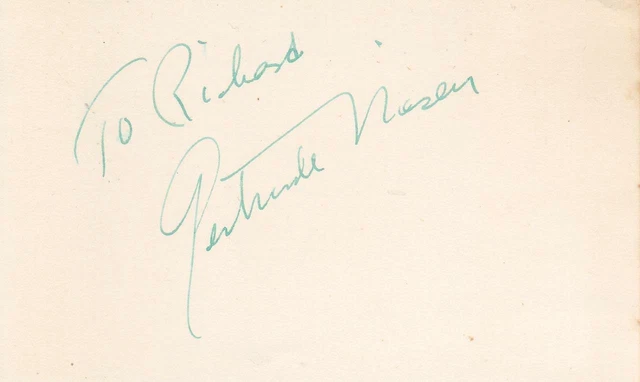 To Richard
Gertrude Niesen